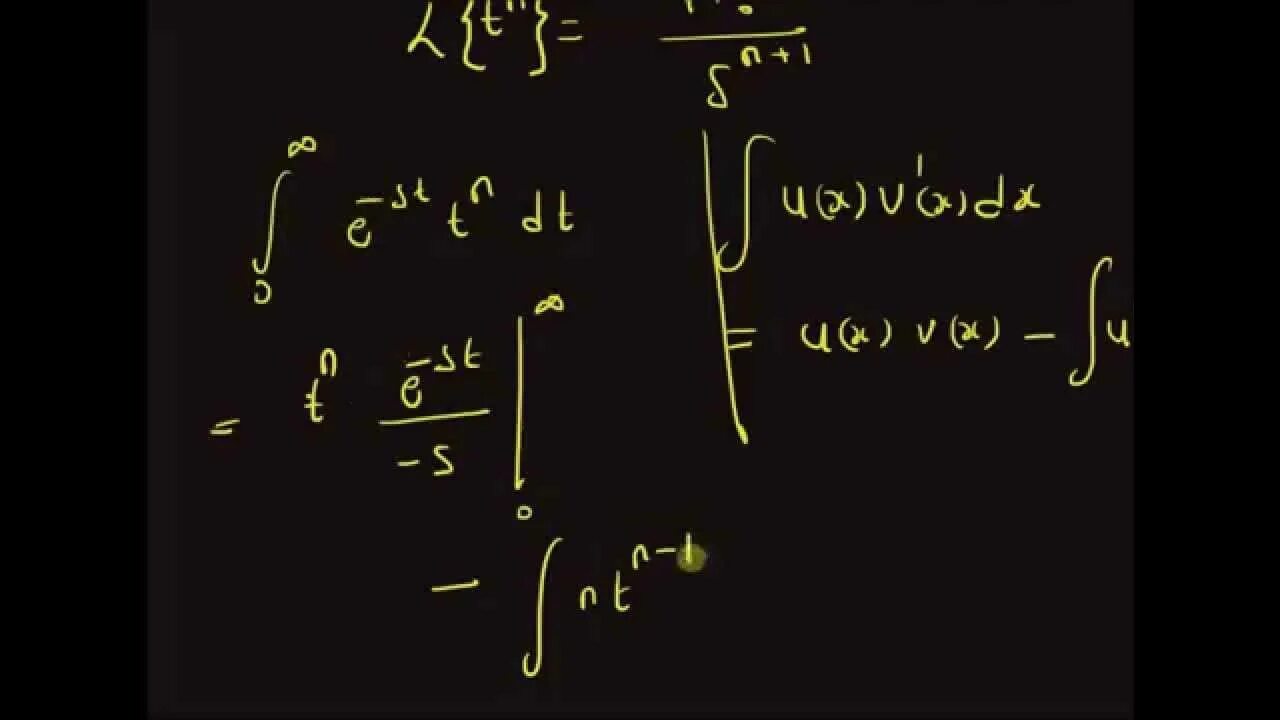 L{t^n} = n! / s^{n+1}
∫_0^∞ e^{-st} t^n dt
= t^n e^{-st} / -s |_0^∞
- ∫ n t^{n-1}
∫ u(x) v'(x) dx
= u(x) v(x) - ∫ u